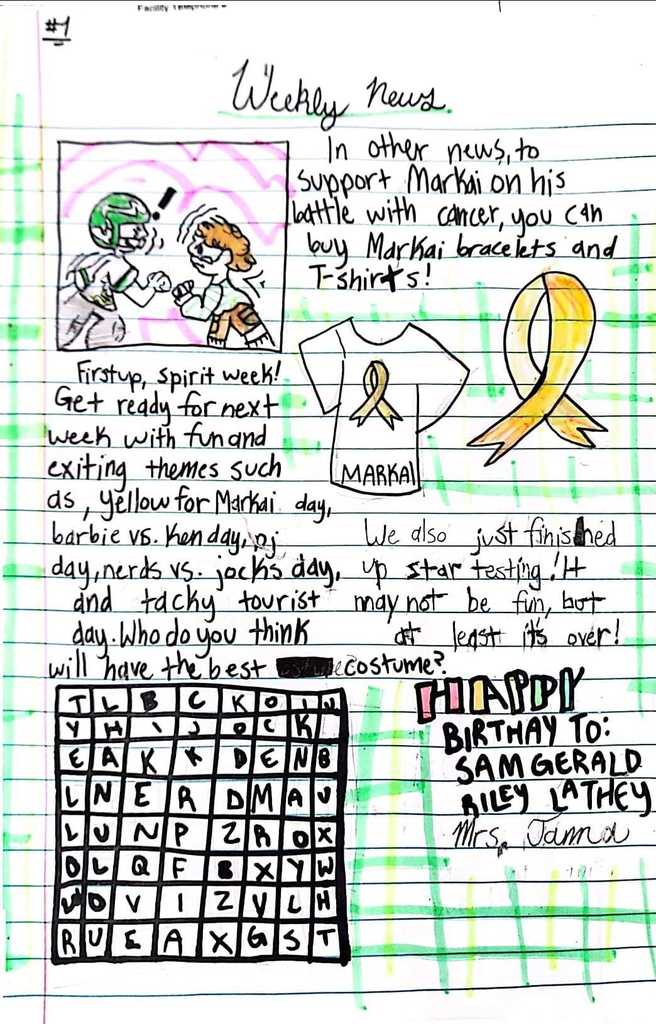 #1
Weekly News
In other news, to
support Markai on his
battle with cancer, you can
buy Markai bracelets and
T-shirts!
!
MARKAI
First up, spirit week!
Get ready for next
week with fun and
exiting themes such
as, yellow for Markai day,
barbie vs. Ken day, pj
day, nerds vs. jocks day,
and tacky tourist
day. Who do you think
will have the best costume?
We also just finished
up star testing! It
may not be fun, but
at least it's over!
T L B C K O I U
Y H I J O C K
E A K K D E N B
L N E R D M A U
L U N P Z R O X
O L Q F B X Y W
W O V I Z V L H
R U E A X G S T
HAPPY
BIRTHAY TO:
SAM GERALD
RILEY LATHEY
Mrs. Janna